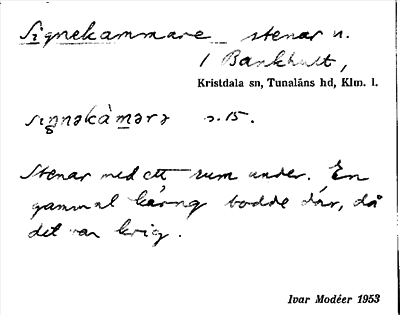 Signekammare stenar n.
i Bankhult,
Kristdala sn, Tunaläns hd, Klm. l.
siŋnəkàmərə s. 15.
Stenar med ett rum under. En
gammal käring bodde där, då
det var krig.
Ivar Modéer 1953